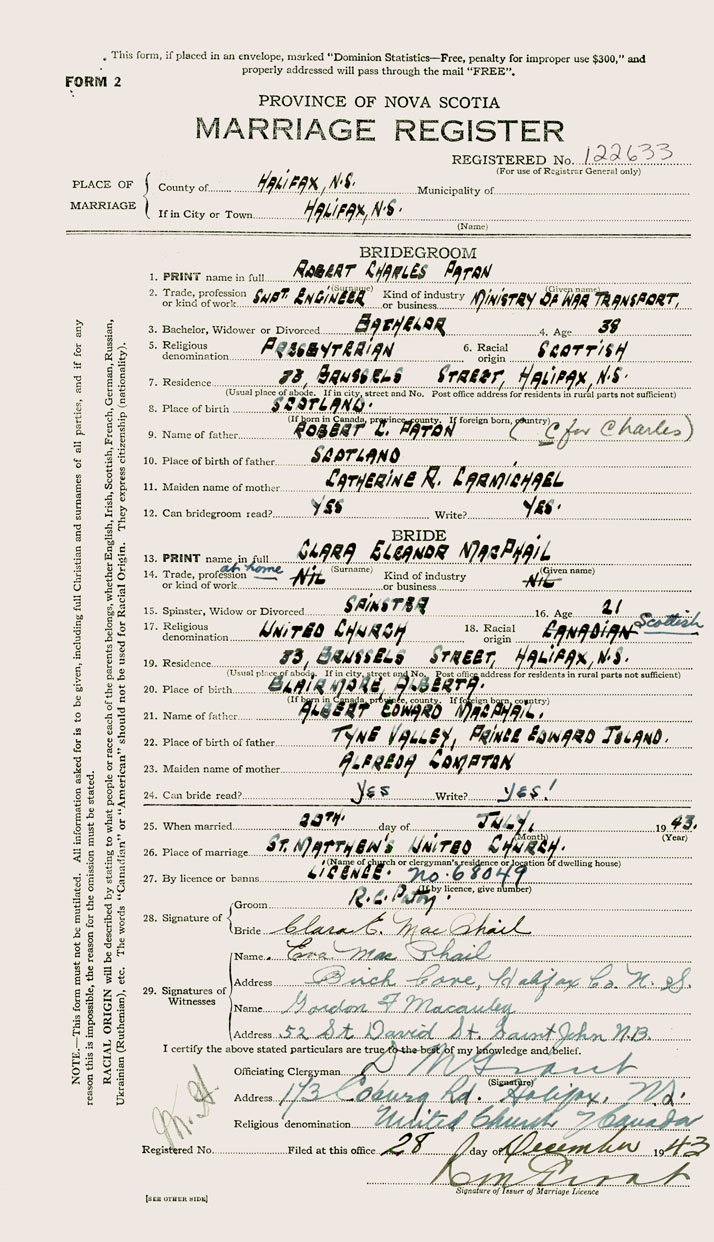 This form, if placed in an envelope, marked "Dominion Statistics—Free, penalty for improper use $300," and
properly addressed will pass through the mail "FREE".
FORM 2
PROVINCE OF NOVA SCOTIA
MARRIAGE REGISTER
REGISTERED No. 122633
(For use of Registrar General only)
PLACE OF MARRIAGE
County of HALIFAX, N.S. Municipality of
If in City or Town HALIFAX, N.S.
(Name)
BRIDEGROOM
1. PRINT name in full ROBERT CHARLES PATON
(Surname) (Given name)
2. Trade, profession or kind of work ENGINEER Kind of industry or business MINISTRY OF WAR TRANSPORT,
3. Bachelor, Widower or Divorced BACHELOR 4. Age 38
5. Religious denomination PRESBYTERIAN 6. Racial origin SCOTTISH
7. Residence 83, BRUSSELS STREET, HALIFAX, N.S.
(Usual place of abode. If in city, street and No. Post office address for residents in rural parts not sufficient)
8. Place of birth SCOTLAND.
(If born in Canada, province, county. If foreign born, country)
9. Name of father ROBERT C. PATON (C for Charles)
10. Place of birth of father SCOTLAND
11. Maiden name of mother CATHERINE R. CARMICHAEL
12. Can bridegroom read? YES Write? YES.
BRIDE
13. PRINT name in full CLARA ELEANOR MACPHAIL
(Surname) (Given name)
14. Trade, profession or kind of work at home NIL Kind of industry or business NIL
15. Spinster, Widow or Divorced SPINSTER 16. Age 21
17. Religious denomination UNITED CHURCH 18. Racial origin CANADIAN Scottish
19. Residence 83, BRUSSELS STREET, HALIFAX, N.S.
(Usual place of abode. If in city, street and No. Post office address for residents in rural parts not sufficient)
20. Place of birth BLAIRMORE, ALBERTA.
(If born in Canada, province, county. If foreign born, country)
21. Name of father ALBERT EDWARD MACPHAIL.
22. Place of birth of father TYNE VALLEY, PRINCE EDWARD ISLAND.
23. Maiden name of mother ALFREDA COMPTON
24. Can bride read? YES Write? YES!
25. When married 20TH. day of JULY, 1943.
(Month) (Year)
26. Place of marriage ST. MATTHEW'S UNITED CHURCH.
(Name of church or clergyman's residence or location of dwelling house)
27. By licence or banns LICENCE. No. 68049
(If by licence, give number)
28. Signature of
Groom R.C. Paton.
Bride Clara E. MacPhail
29. Signatures of Witnesses
Name Eva MacPhail
Address Birch Cove, Halifax Co. N.S.
Name Gordon F Macauley
Address 52 St David St. Saint John N.B.
I certify the above stated particulars are true to the best of my knowledge and belief.
Officiating Clergyman D M Grant
(Signature)
Address 173 Coburg Rd. Halifax, N.S.
Religious denomination United Church of Canada
Registered No. Filed at this office 28 day of December 1943
Signature of Issuer of Marriage Licence
[SEE OTHER SIDE]
NOTE.—This form must not be mutilated. All information asked for is to be given, including full Christian and surnames of all parties, and if for any
reason this is impossible, the reason for the omission must be stated.
RACIAL ORIGIN will be described by stating to what people or race each of the parents belongs, whether English, Irish, Scottish, French, German, Russian,
Ukrainian (Ruthenian), etc. The words "Canadian" or "American" should not be used for Racial Origin. They express citizenship (nationality).